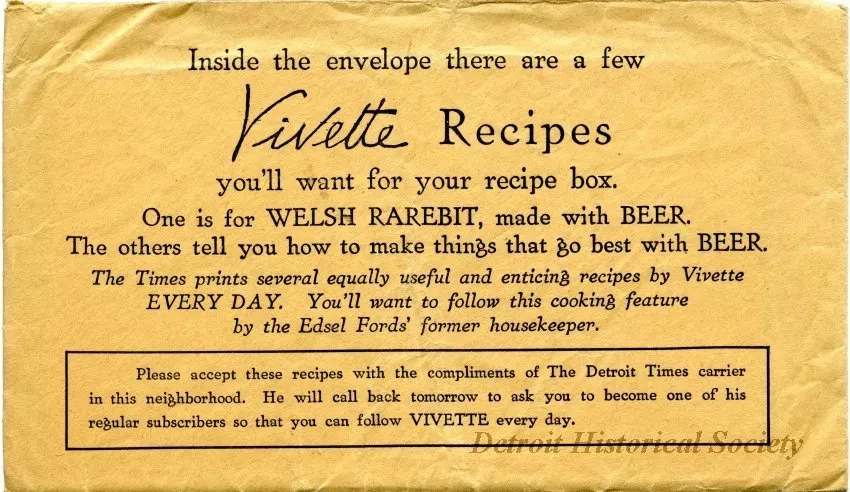 Inside the envelope there are a few
Vivette Recipes
you'll want for your recipe box.
One is for WELSH RAREBIT, made with BEER.
The others tell you how to make things that go best with BEER.
The Times prints several equally useful and enticing recipes by Vivette
EVERY DAY. You'll want to follow this cooking feature
by the Edsel Fords' former housekeeper.
Please accept these recipes with the compliments of The Detroit Times carrier
in this neighborhood. He will call back tomorrow to ask you to become one of his
regular subscribers so that you can follow VIVETTE every day.
Detroit Historical Society